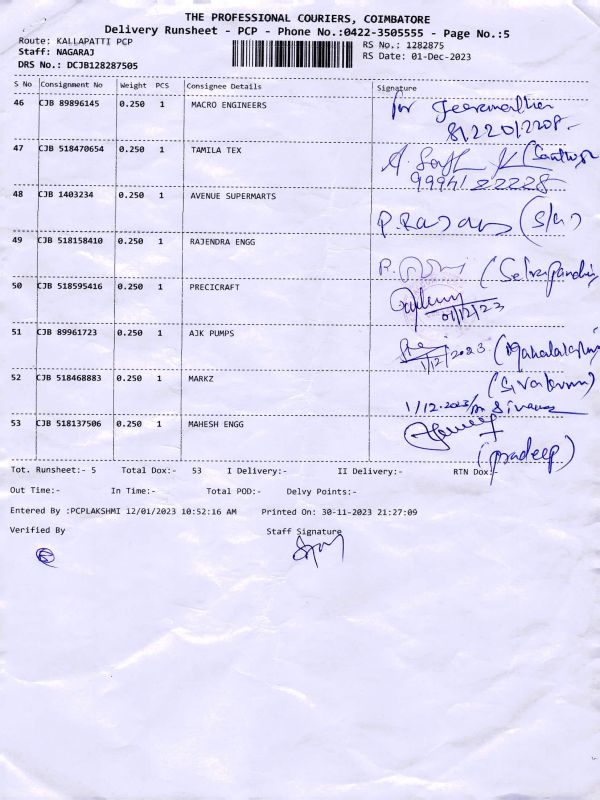 THE PROFESSIONAL COURIERS, COIMBATORE
Delivery Runsheet - PCP - Phone No.:0422-3505555 - Page No.:5
Route: KALLAPATTI PCP
Staff: NAGARAJ
DRS No.: DCJB128287505
RS No.: 1282875
RS Date: 01-Dec-2023
S No Consignment No Weight PCS Consignee Details Signature
46 CJB 89896145 0.250 1 MACRO ENGINEERS for
8122012208
47 CJB 518470654 0.250 1 TAMILA TEX
9994122228
48 CJB 1403234 0.250 1 AVENUE SUPERMARTS
49 CJB 518158410 0.250 1 RAJENDRA ENGG R.
50 CJB 518595416 0.250 1 PRECICRAFT
01/12/23
51 CJB 89961723 0.250 1 AJK PUMPS
1/12/2023
52 CJB 518468883 0.250 1 MARKZ
1/12.2023
53 CJB 518137506 0.250 1 MAHESH ENGG
(pradeep)
Tot. Runsheet:- 5 Total Dox:- 53 I Delivery:- II Delivery:- RTN Dox:-
Out Time:- In Time:- Total POD:- Delvy Points:-
Entered By :PCPLAKSHMI 12/01/2023 10:52:16 AM Printed On: 30-11-2023 21:27:09
Verified By Staff Signature